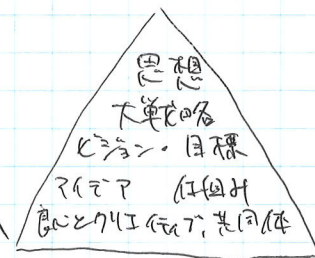 思想
大戦略
ビジョン・目標
アイデア 仕組み
良いヒトクリエイティブ、共同体